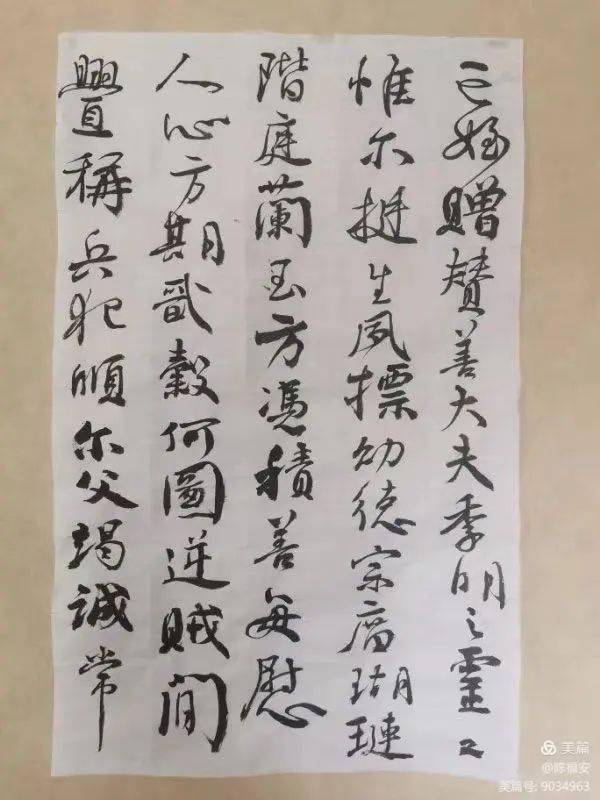 亡姪贈賛善大夫季明之靈曰
惟尔挺生夙摽幼德宗庿瑚璉
階庭蘭玉方憑積善每慰
人心方期戩穀何圖逆賊間
釁稱兵犯順尔父竭誠常
美篇
@福安
美篇号: 9034963